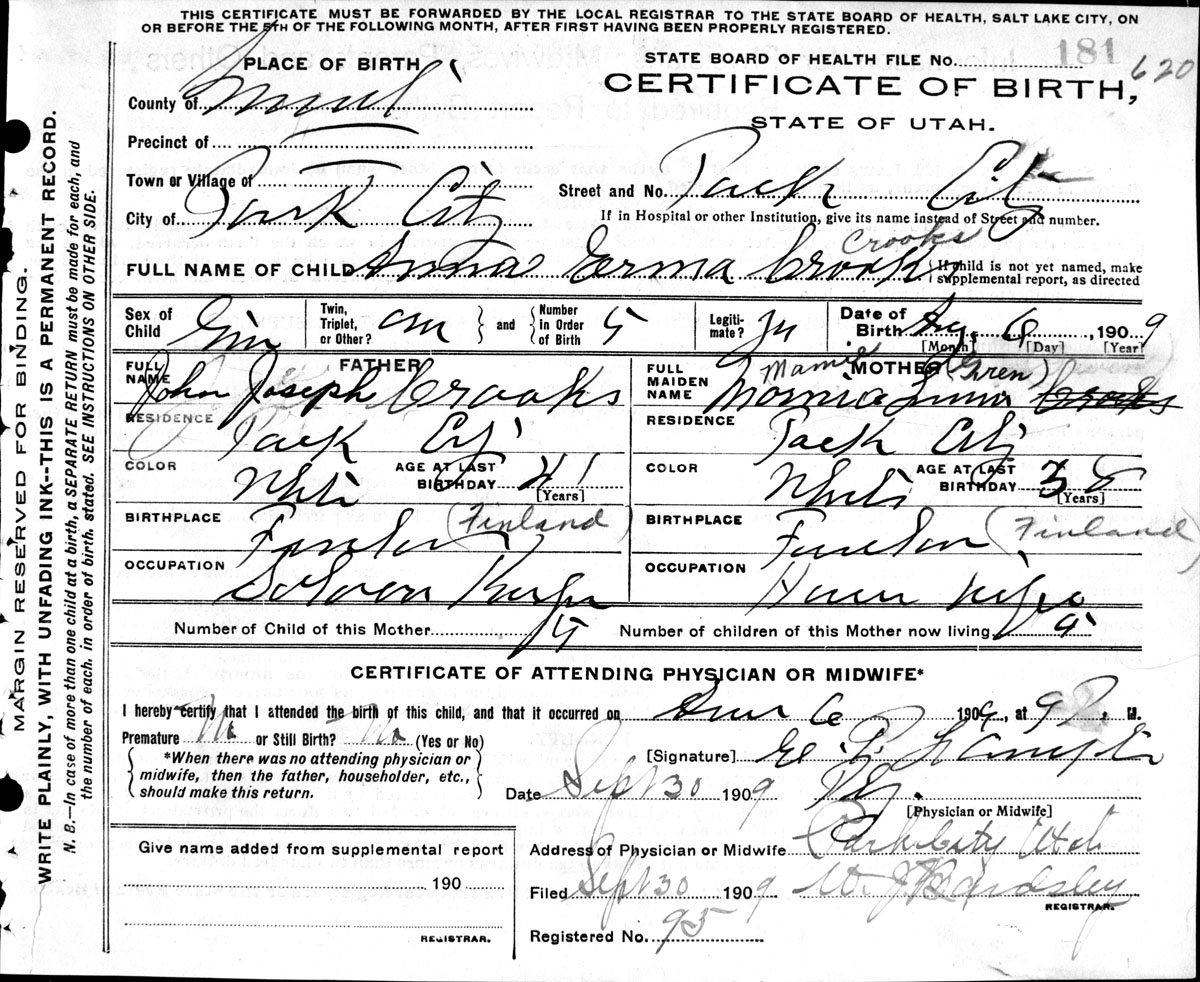 THIS CERTIFICATE MUST BE FORWARDED BY THE LOCAL REGISTRAR TO THE STATE BOARD OF HEALTH, SALT LAKE CITY, ON
OR BEFORE THE 5TH OF THE FOLLOWING MONTH, AFTER FIRST HAVING BEEN PROPERLY REGISTERED.
PLACE OF BIRTH
STATE BOARD OF HEALTH FILE No. 181 620
CERTIFICATE OF BIRTH,
STATE OF UTAH.
County of
Precinct of
Town or Village of
City of Park City
Street and No. Park City
If in Hospital or other Institution, give its name instead of Street and number.
Crooks
FULL NAME OF CHILD Anna Erma Crooks
If child is not yet named, make supplemental report, as directed
Sex of Child
Twin, Triplet, or Other?
and
Number in Order of Birth 5
Legitimate?
Date of Birth 6 1909
[Month] [Day] [Year]
FATHER
FULL NAME John Joseph Crooks
RESIDENCE Park City
COLOR White
AGE AT LAST BIRTHDAY 41
[Years]
BIRTHPLACE (Finland)
OCCUPATION Saloon Keeper
MOTHER
FULL MAIDEN NAME Mamie Crooks
RESIDENCE Park City
COLOR White
AGE AT LAST BIRTHDAY
[Years]
BIRTHPLACE (Finland)
OCCUPATION House Wife
Number of Child of this Mother 5
Number of children of this Mother now living
CERTIFICATE OF ATTENDING PHYSICIAN OR MIDWIFE*
I hereby certify that I attended the birth of this child, and that it occurred on 6 1909, at M.
Premature No or Still Birth? No (Yes or No)
*When there was no attending physician or
midwife, then the father, householder, etc.,
should make this return.
[Signature]
Date Sept 30 1909
[Physician or Midwife]
Give name added from supplemental report
190
REGISTRAR.
Address of Physician or Midwife Park City Utah
Filed Sept 30 1909 W. J. Bardsley
REGISTRAR.
Registered No. 95
MARGIN RESERVED FOR BINDING.
WRITE PLAINLY, WITH UNFADING INK--THIS IS A PERMANENT RECORD.
N. B.—In case of more than one child at a birth, a SEPARATE RETURN must be made for each, and
the number of each, in order of birth, stated. SEE INSTRUCTIONS ON OTHER SIDE.